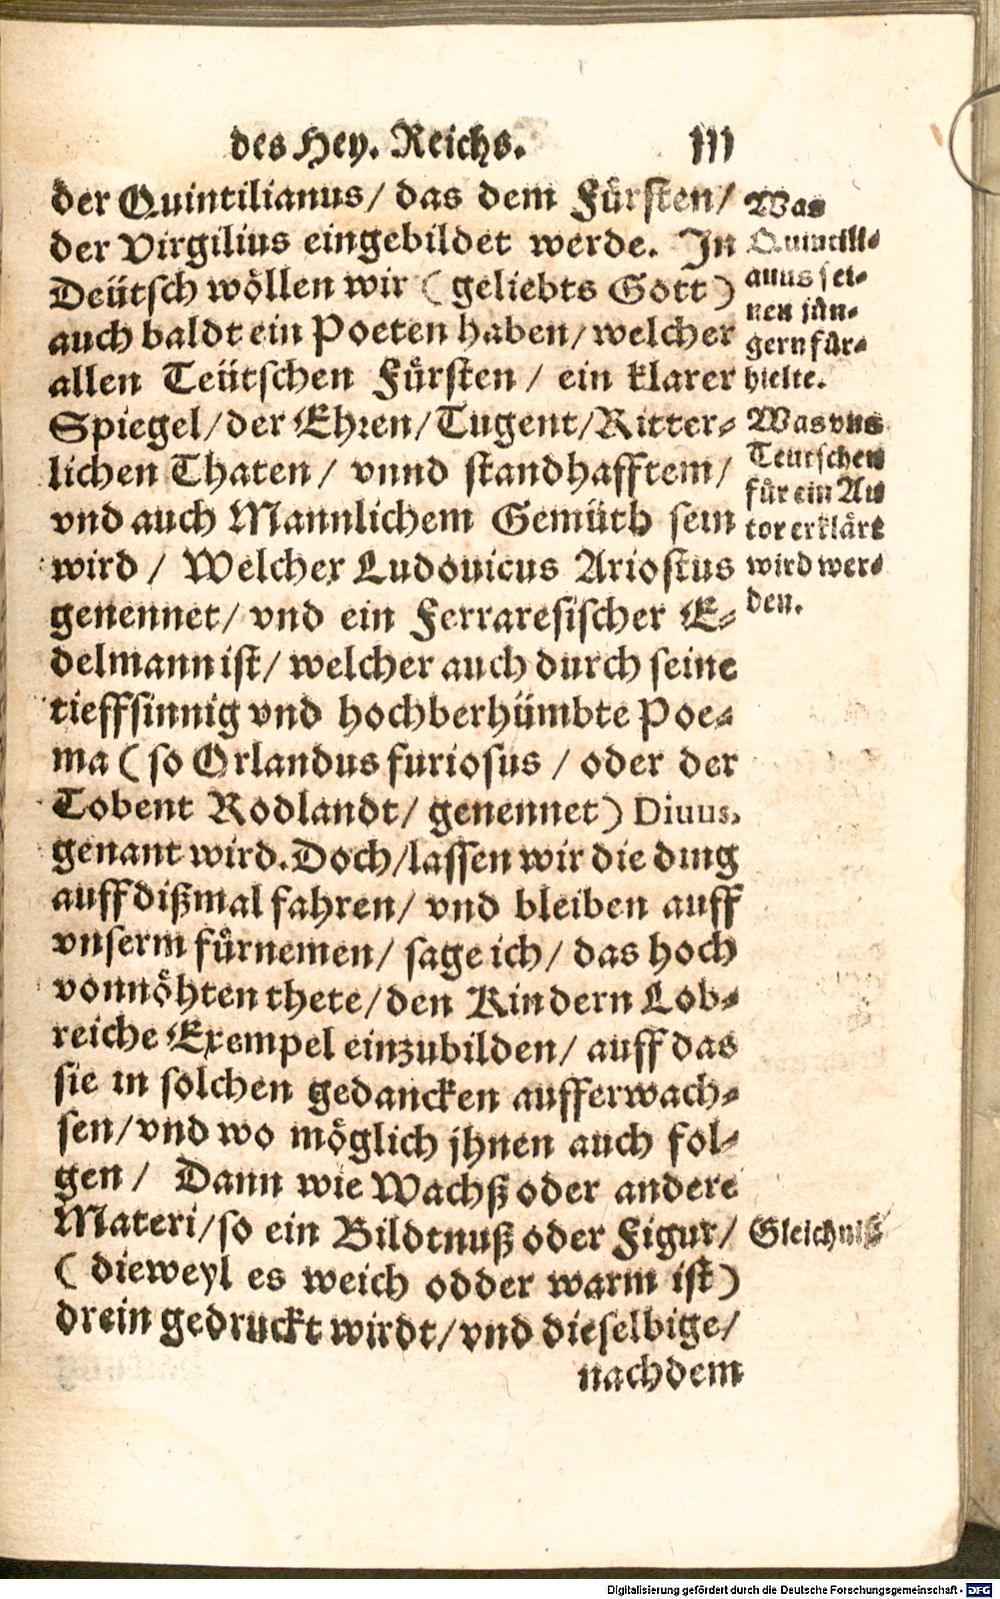 des Hey. Reichs. III
der Quintilianus/ das dem Fürsten/
der Virgilius eingebildet werde. In
Deütsch wöllen wir (geliebts Gott)
auch baldt ein Poeten haben/ welcher
allen Teütschen Fürsten / ein klarer
Spiegel/der Ehren/Tugent/Ritter-
lichen Thaten/ vnnd standhafftem/
vnd auch Mannlichem Gemüth sein
wird / Welcher Ludouicus Ariostus
genennet/ vnd ein Ferraresischer E-
delmann ist/ welcher auch durch seine
tieffsinnig vnd hochberhümbte Poe-
ma (so Orlandus furiosus / oder der
Tobent Rodlandt/ genennet) Diuus,
genant wird. Doch/lassen wir die ding
auff dißmal fahren/ vnd bleiben auff
vnserm fürnemen/ sage ich/ das hoch
vonnöhten thete/den Kindern Lob-
reiche Exempel einzubilden/ auff das
sie in solchen gedancken aufferwach-
sen/vnd wo möglich jhnen auch fol-
gen/ Dann wie Wachß oder andere
Materi/so ein Bildtnuß oder Figur/
( dieweyl es weich odder warm ist)
drein gedruckt wirdt/vnd dieselbige/
nachdem
Was
Quintili-
anus sei-
nen jün-
gern für-
hielte.
Was vns
Teutschen
für ein Au
tor erklärt
wird wer-
den.
Gleichniß
Digitalisierung gefördert durch die Deutsche Forschungsgemeinschaft - DFG